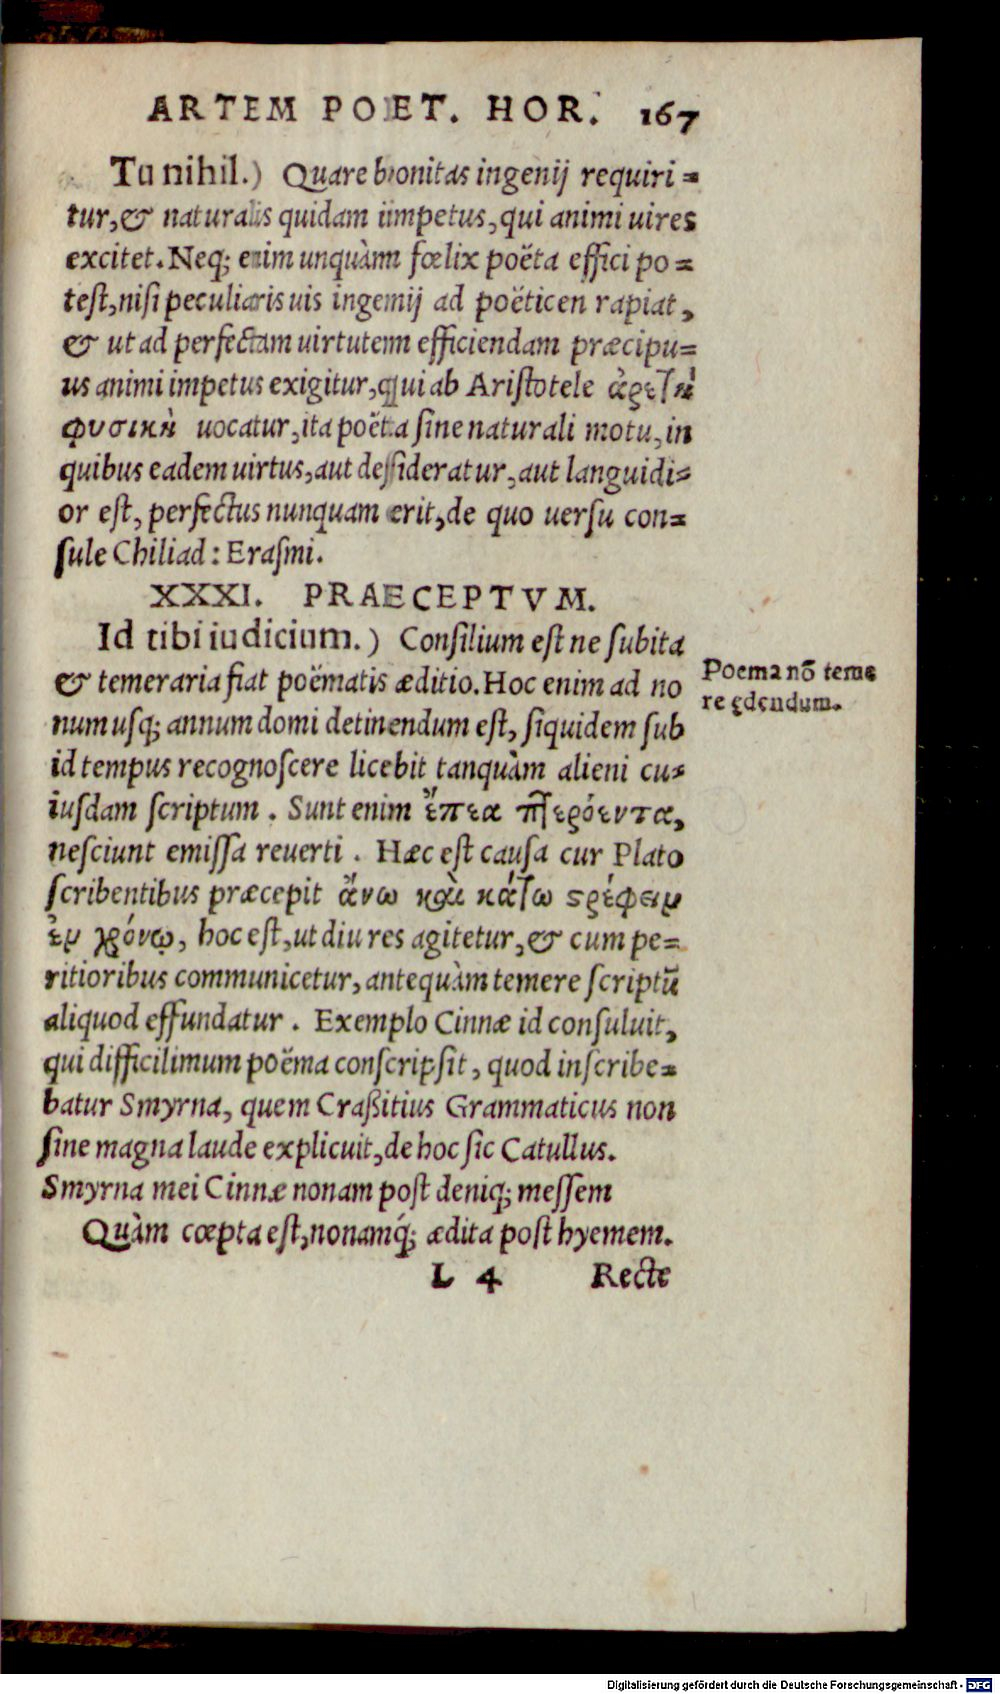 ARTEM POET. HOR. 167
Tu nihil.) Quare bonitas ingenij requiri-
tur, & naturalis quidam impetus, qui animi uires
excitet. Neq; enim unquàm fœlix poëta effici po-
test, nisi peculiaris uis ingenij ad poëticen rapiat,
& ut ad perfectam uirtutem efficiendam præcipu-
us animi impetus exigitur, qui ab Aristotele ἀρετὴ
φυσικὴ uocatur, ita poëta sine naturali motu, in
quibus eadem uirtus, aut desideratur, aut languidi-
or est, perfectus nunquam erit, de quo uersu con-
sule Chiliad: Erasmi.
XXXI. PRAECEPTVM.
Id tibi iudicium.) Consilium est ne subita
& temeraria fiat poëmatis æditio. Hoc enim ad no
num usq; annum domi detinendum est, siquidem sub
id tempus recognoscere licebit tanquàm alieni cu-
iusdam scriptum. Sunt enim ἔπεα πτερόεντα,
nesciunt emissa reuerti. Hæc est causa cur Plato
scribentibus præcepit ἄνω καὶ κάτω στρέφειν
ἐν χρόνῳ, hoc est, ut diu res agitetur, & cum pe-
ritioribus communicetur, antequàm temere scriptū
aliquod effundatur. Exemplo Cinnæ id consuluit,
qui difficilimum poëma conscripsit, quod inscribe-
batur Smyrna, quem Craßitius Grammaticus non
sine magna laude explicuit, de hoc sic Catullus.
Smyrna mei Cinnæ nonam post deniq; messem
Quàm cœpta est, nonamq́; ædita post hyemem.
L 4 Recte
Poema nō teme
re ędendum.
Digitalisierung gefördert durch die Deutsche Forschungsgemeinschaft - DFG